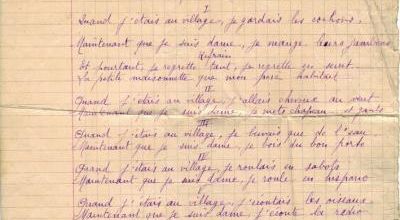 I
Quand j'étais au village, je gardais les cochons,
Maintenant que je suis dame, je mange leurs jambons
Refrain
Et pourtant, je regrette tant, je regrette qui
La petite maisonnette que mon père habitait
II
Quand j'étais au village, j'allais cheveux au vent
Maintenant que je suis dame, je mets chapeau et gants
III
Quand j'étais au village, je buvais que de l'eau
Maintenant que je suis dame, je bois du bon porto
IV
Quand j'étais au village, je roulais en sabots
Maintenant que je suis dame, je roule en hispano
Quand j'étais au village, j'écoutais les oiseaux
Maintenant que je suis dame, j'écoute la radio